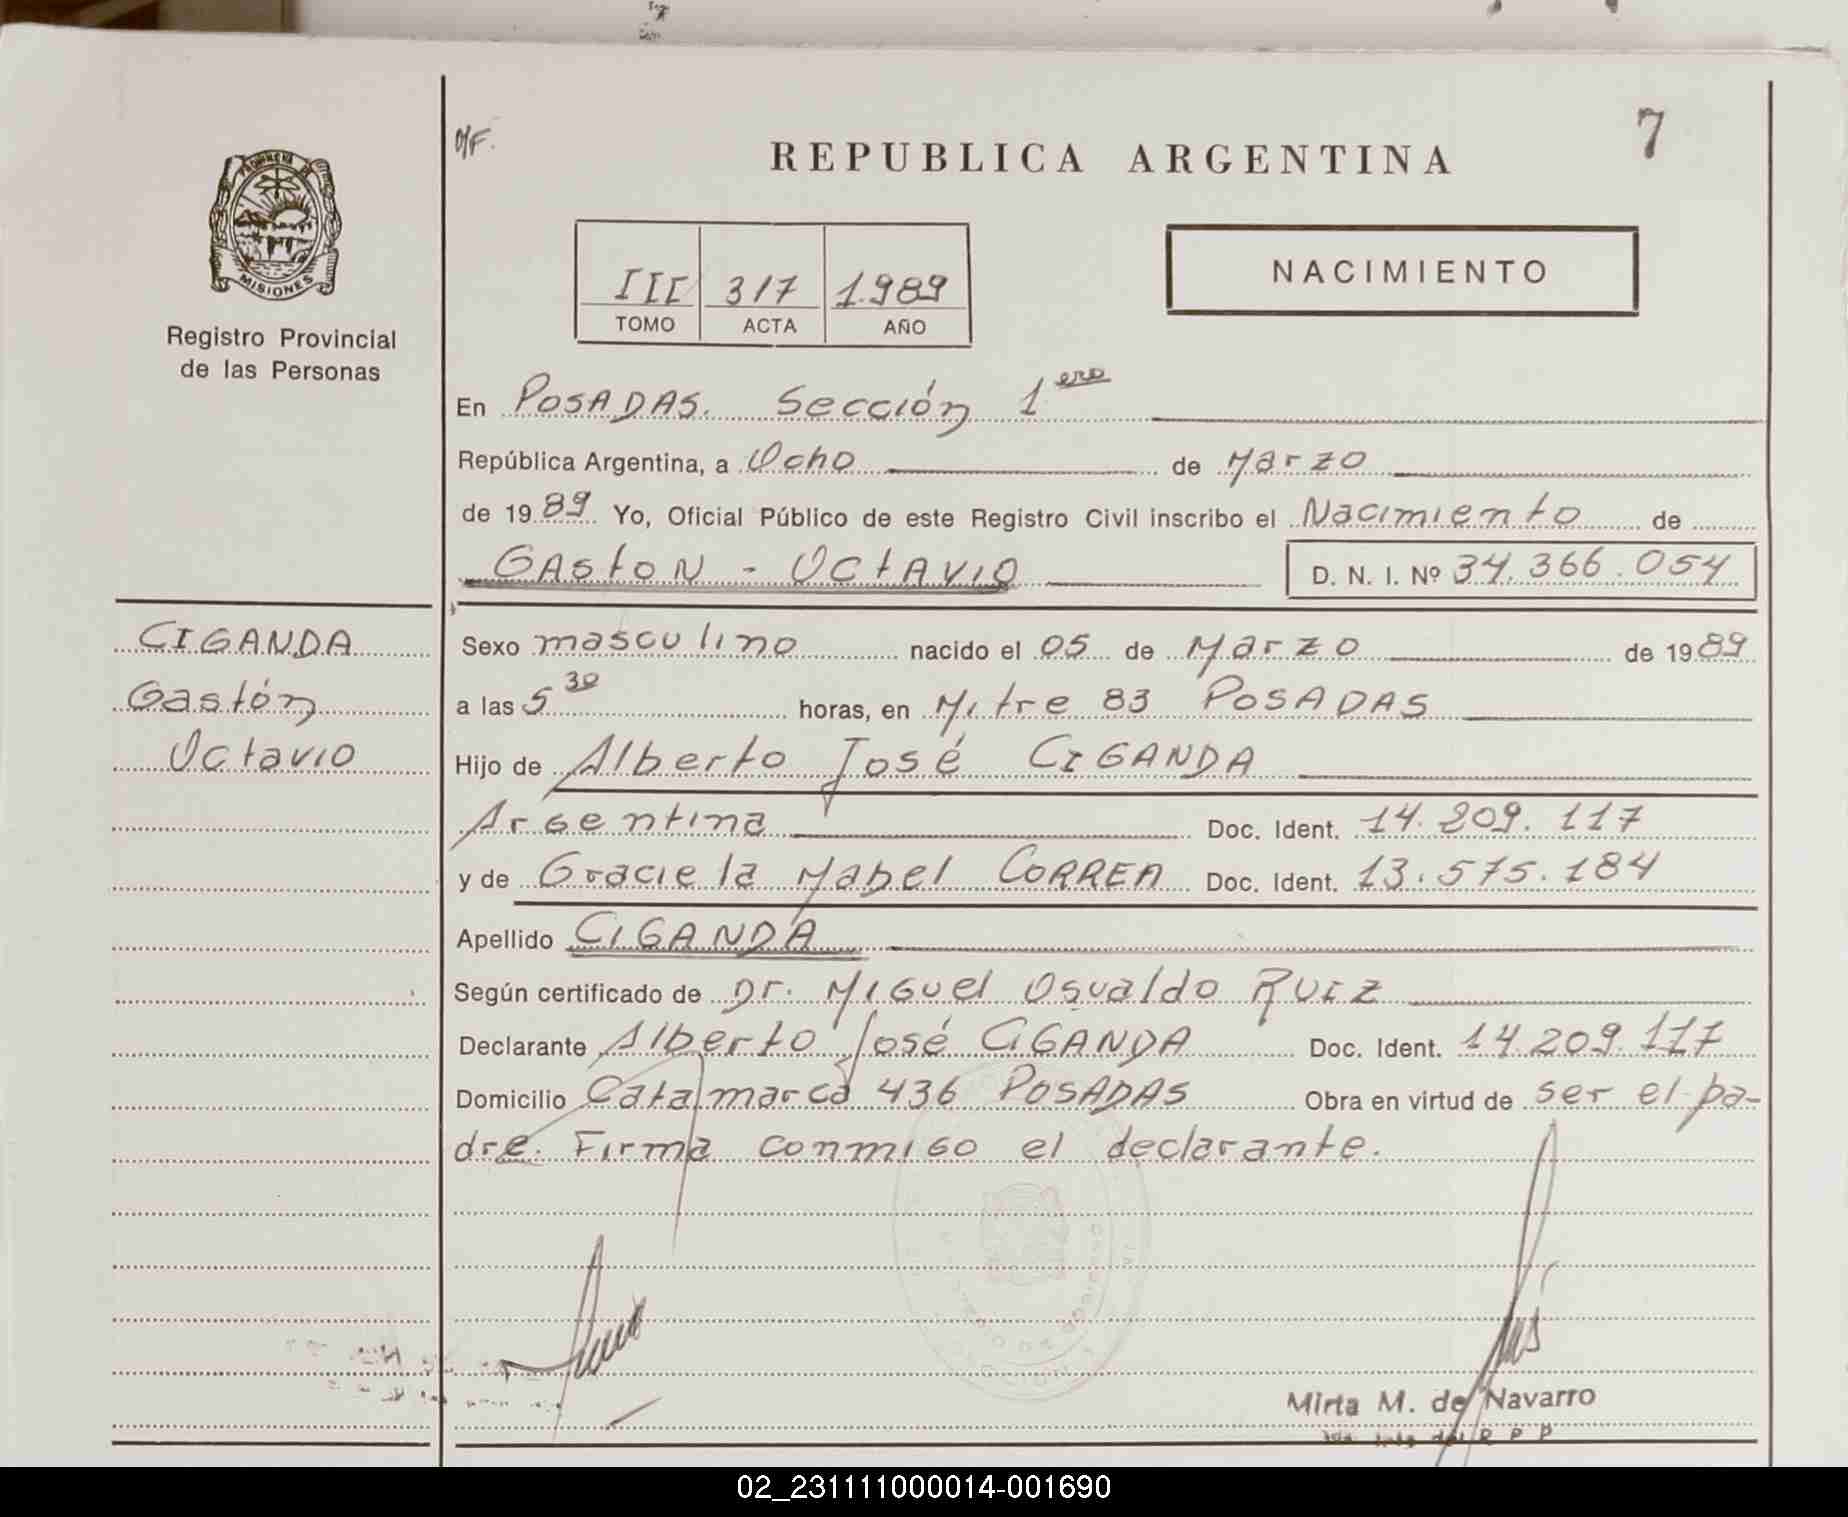 O/F.
REPUBLICA ARGENTINA
7
PROVINCIA DE
MISIONES
Registro Provincial
de las Personas
III 317 1.989
TOMO ACTA AÑO
NACIMIENTO
En POSADAS. Sección 1ero
República Argentina, a Ocho de Marzo
de 1989 Yo, Oficial Público de este Registro Civil inscribo el Nacimiento de
GASTON - OCTAVIO D. N. I. Nº 34.366.054
CIGANDA
Gastón
Octavio
Sexo masculino nacido el 05 de Marzo de 1989
a las 5 30 horas, en Mitre 83 POSADAS
Hijo de Alberto José CIGANDA
Argentina Doc. Ident. 14.209.117
y de Graciela Mabel CORREA Doc. Ident. 13.575.184
Apellido CIGANDA
Según certificado de Dr. Miguel Osvaldo RUIZ
Declarante Alberto José CIGANDA Doc. Ident. 14.209.117
Domicilio Catamarca 436 POSADAS Obra en virtud de ser el pa-
dre. Firma conmigo el declarante.
Mirta M. de Navarro
del R P P
02_231111000014-001690